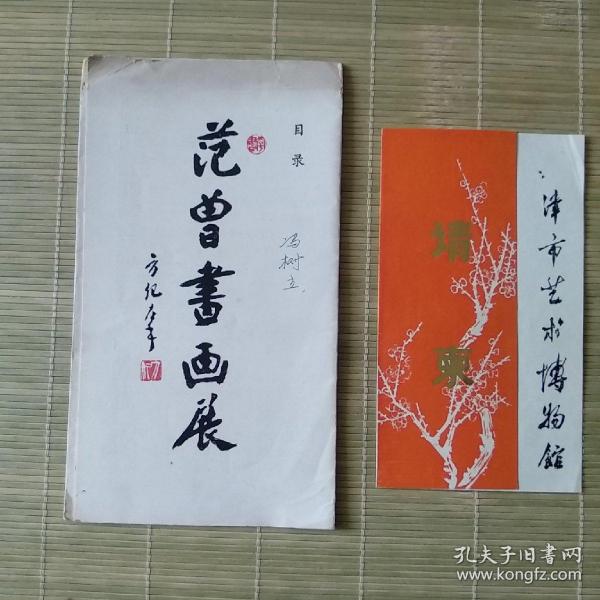 目录
范曾書画展
方纪左手
冯树立
请柬
津市艺术博物館
孔夫子旧書网
www.kongfz.com